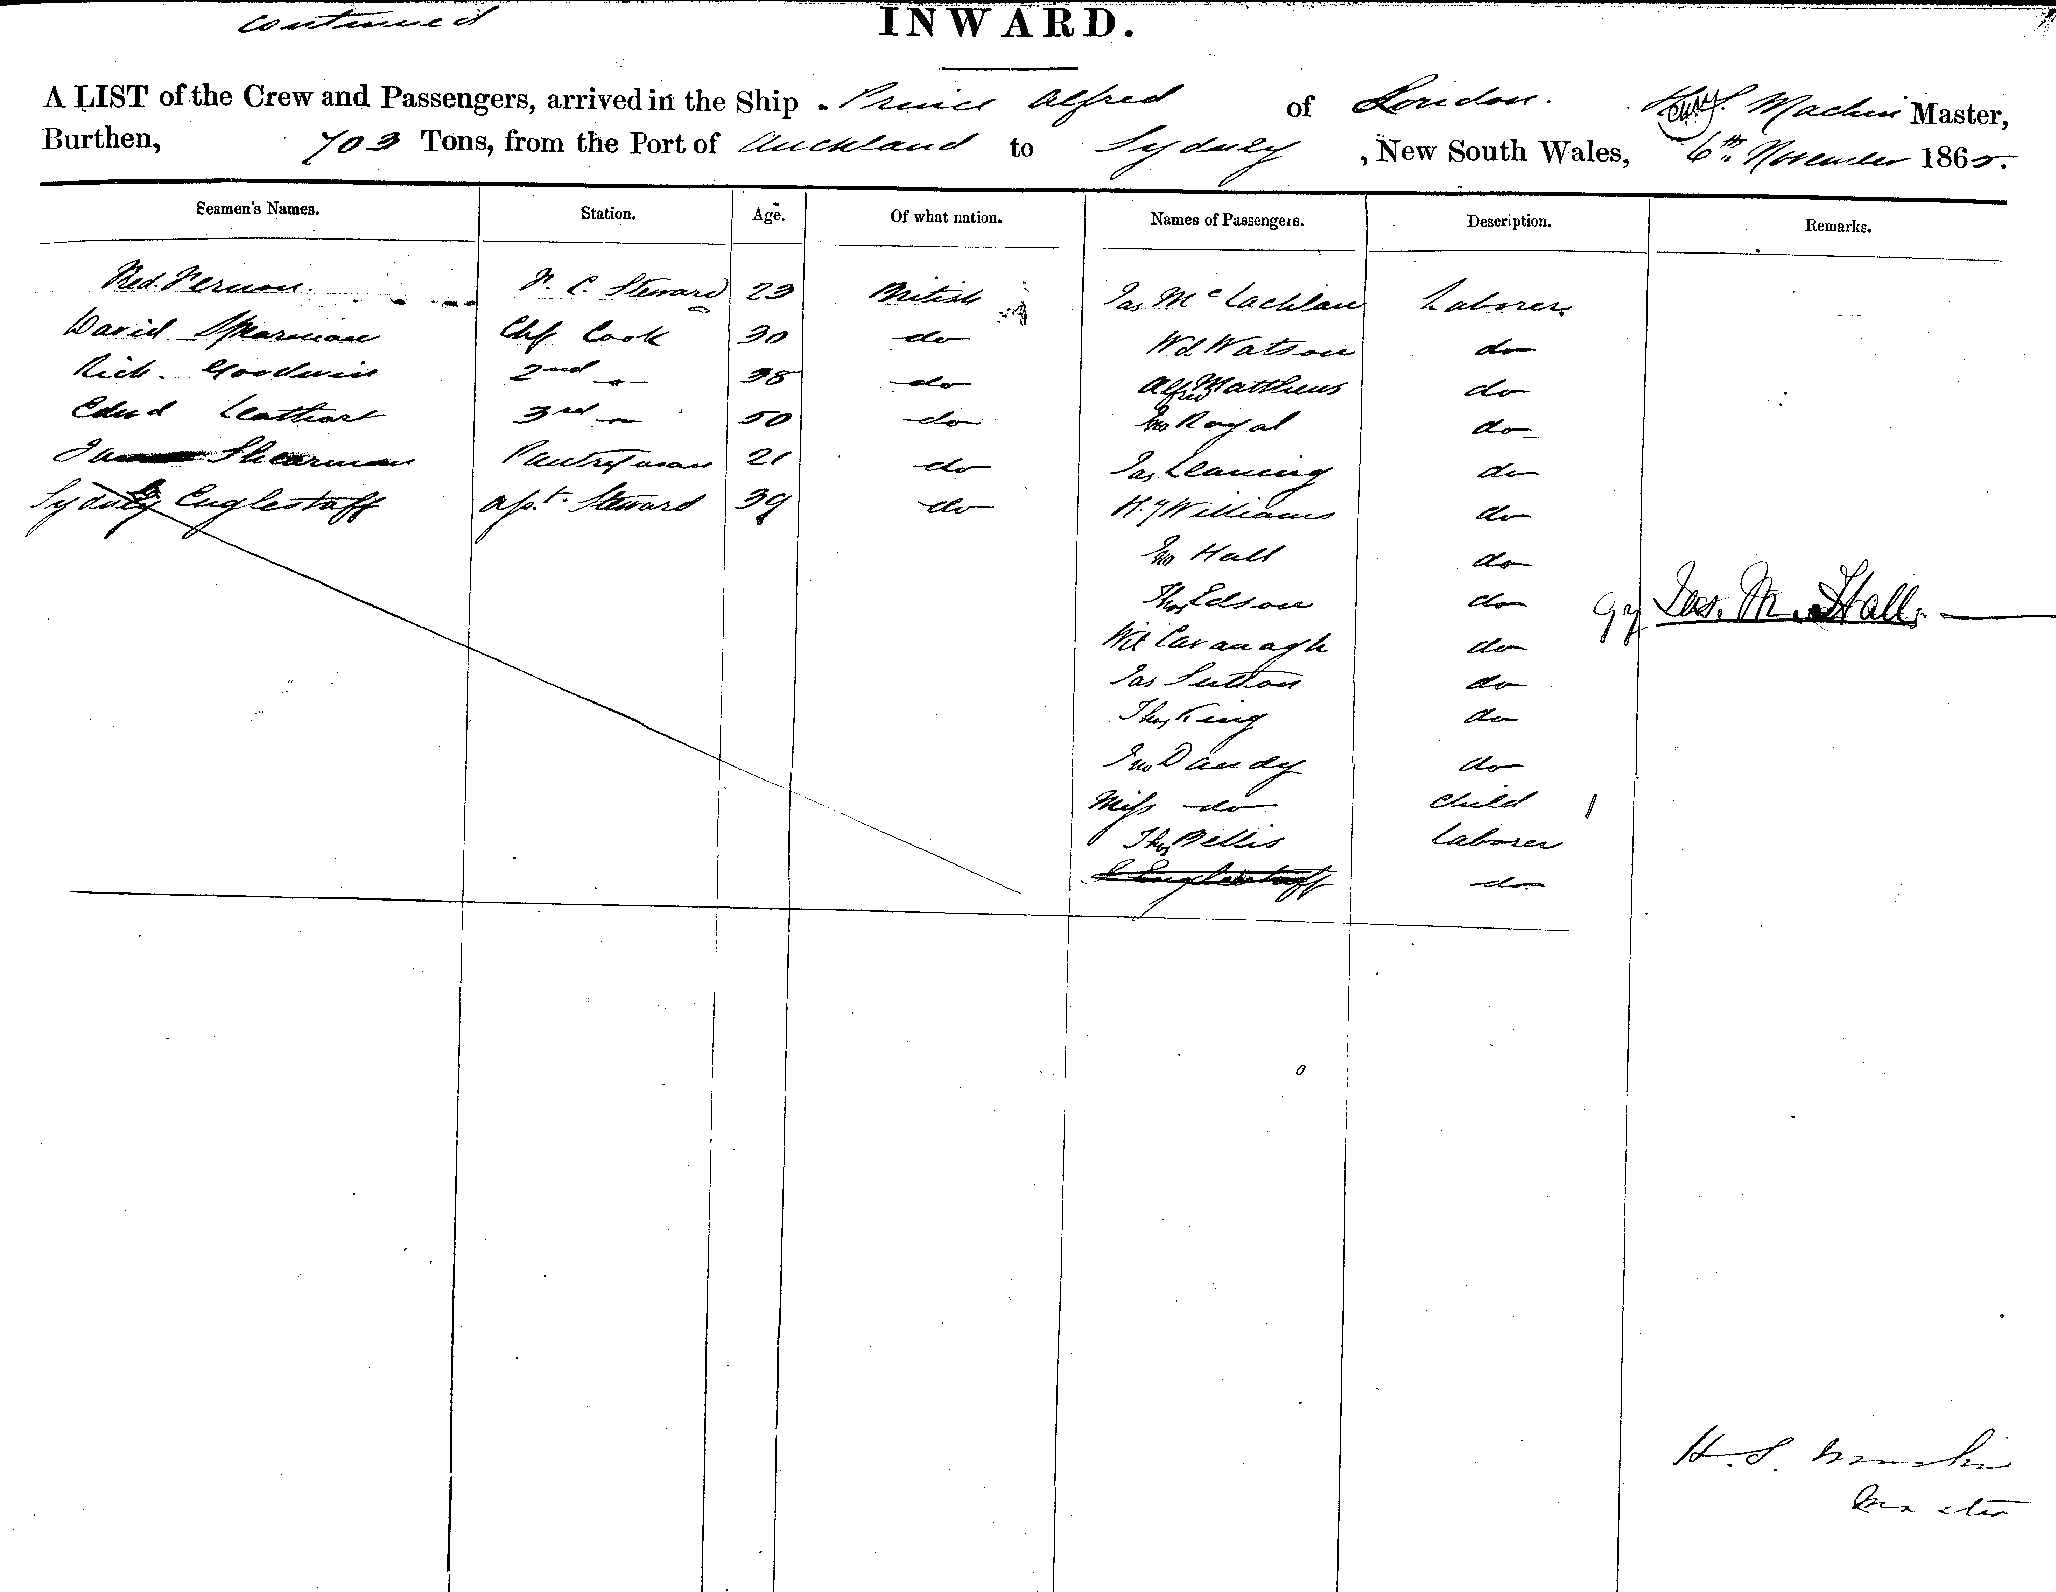 continued
INWARD.
A LIST of the Crew and Passengers, arrived in the Ship Prince Alfred of London. Machin Master,
Burthen, 703 Tons, from the Port of Auckland to Sydney, New South Wales, 6th November 1865.
Seamen's Names. Station. Age. Of what nation. Names of Passengers. Description. Remarks.
Fred. Vernon. F. C. Steward 23 British Jas McLachlan Laborer
David Spearman Chf Cook 30 do Wd Watson do
Rich. Goodwin 2nd " 38 do Alfred Matthews do
Edwd Leathart 3rd " 50 do Jno Royal do
Shearman Pantryman 21 do Jas Leaning do
Sydney Euglestaff asst. Steward 39 do H. J Williams do
Jno Hall do
Thos Edson do
Jas. M. Hall
Wd Cavanagh do
Jas Sutton do
Thos King do
Jno Dandy do
Miss do Child 1
Thos Bellis Laborer
Euglestaff do
H. S. Machin
Master